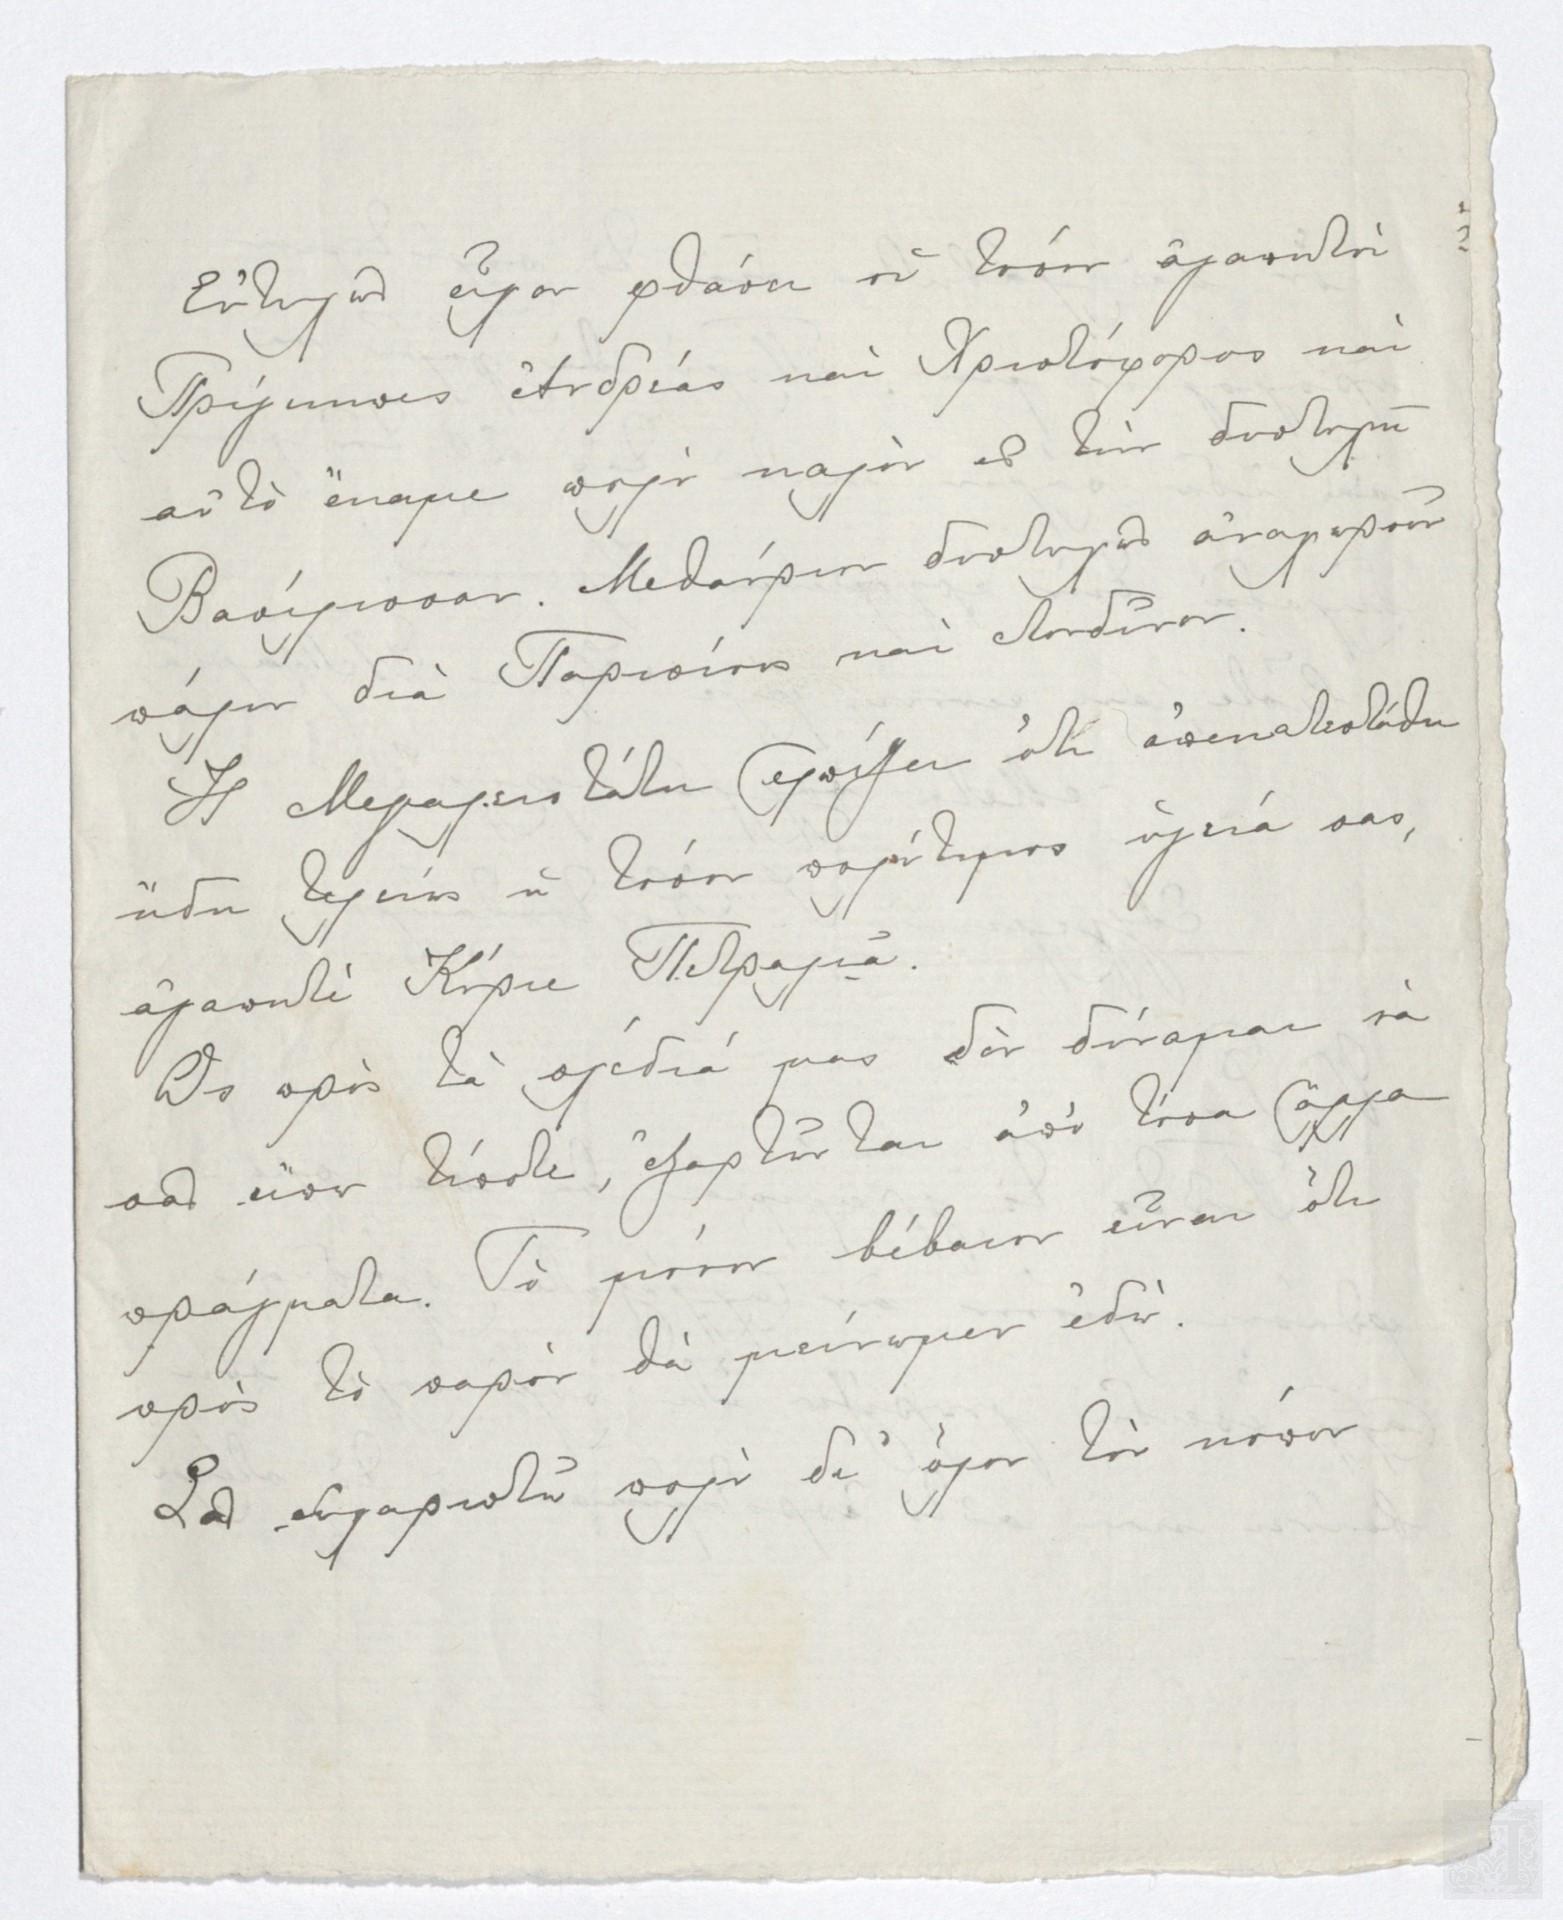 Εὐτυχῶς εἶχον φθάσει οἱ τόσον ἀγαπητοὶ
Πρίγκηπες Ἀνδρέας καὶ Χριστόφορος καὶ
αὐτὸ ἔκαμε πολὺ καλὸν εἰς τὴν δυστυχῆ
Βασίλισσαν. Μεθαύριον δυστυχῶς ἀναχωροῦν
πάλιν διὰ Παρισίους καὶ Λονδῖνον.
Ἡ Μεγαλειοτάτη ἐλπίζει ὅτι ἀπεκατεστάθη
ἤδη τελείως ἡ τόσον πολύτιμος ὑγειά σας,
ἀγαπητὲ Κύριε Πετραλιᾶ.
Ὡς πρὸς τὰ σχέδιά μας δὲν δύναμαι νὰ
σᾶς εἴπω τίποτε, ἐξαρτῶνται ἀπὸ τόσα ἄλλα
πράγματα. Τὸ μόνον βέβαιον εἶναι ὅτι
πρὸς τὸ παρὸν θὰ μείνωμεν ἐδῶ.
Σᾶς εὐχαριστῶ πολὺ δι' ὅλον τὸν κόπον